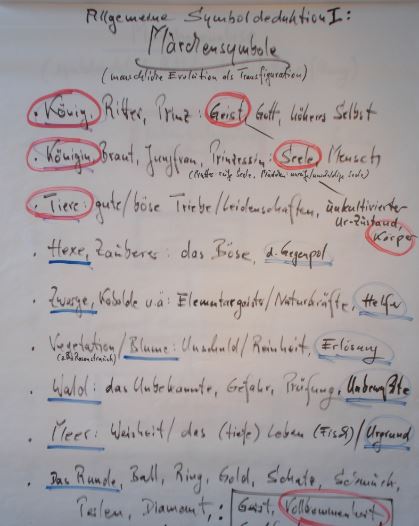 Allgemeine Symboldeduktion I:
Märchensymbole
(menschliche Evolution als Transfiguration)
· König, Ritter, Prinz: Geist, Gott, höheres Selbst
· Königin, Braut, Jungfrau, Prinzessin: Seele, Mensch
(Mutter reife Seele, Mädchen unreife/unmündige Seele)
· Tiere: gute/böse Triebe/Leidenschaften, unkultivierter
Ur-Zustand,
Körper
· Hexe, Zauberer: das Böse, d. Gegenpol
· Zwerge, Kobolde u.ä: Elementargeister/Naturkräfte, Helfer
· Vegetation/Blume: Unschuld/Reinheit, Erlösung
· Wald: das Unbekannte, Gefahr, Prüfung, Unbewußte
· Meer: Weisheit/das (tiefe) Leben (Fisch)/Urgrund
· Das Runde, Ball, Ring, Gold, Schatz, Schmuck,
Perlen, Diamant,: Geist, Vollkommenheit